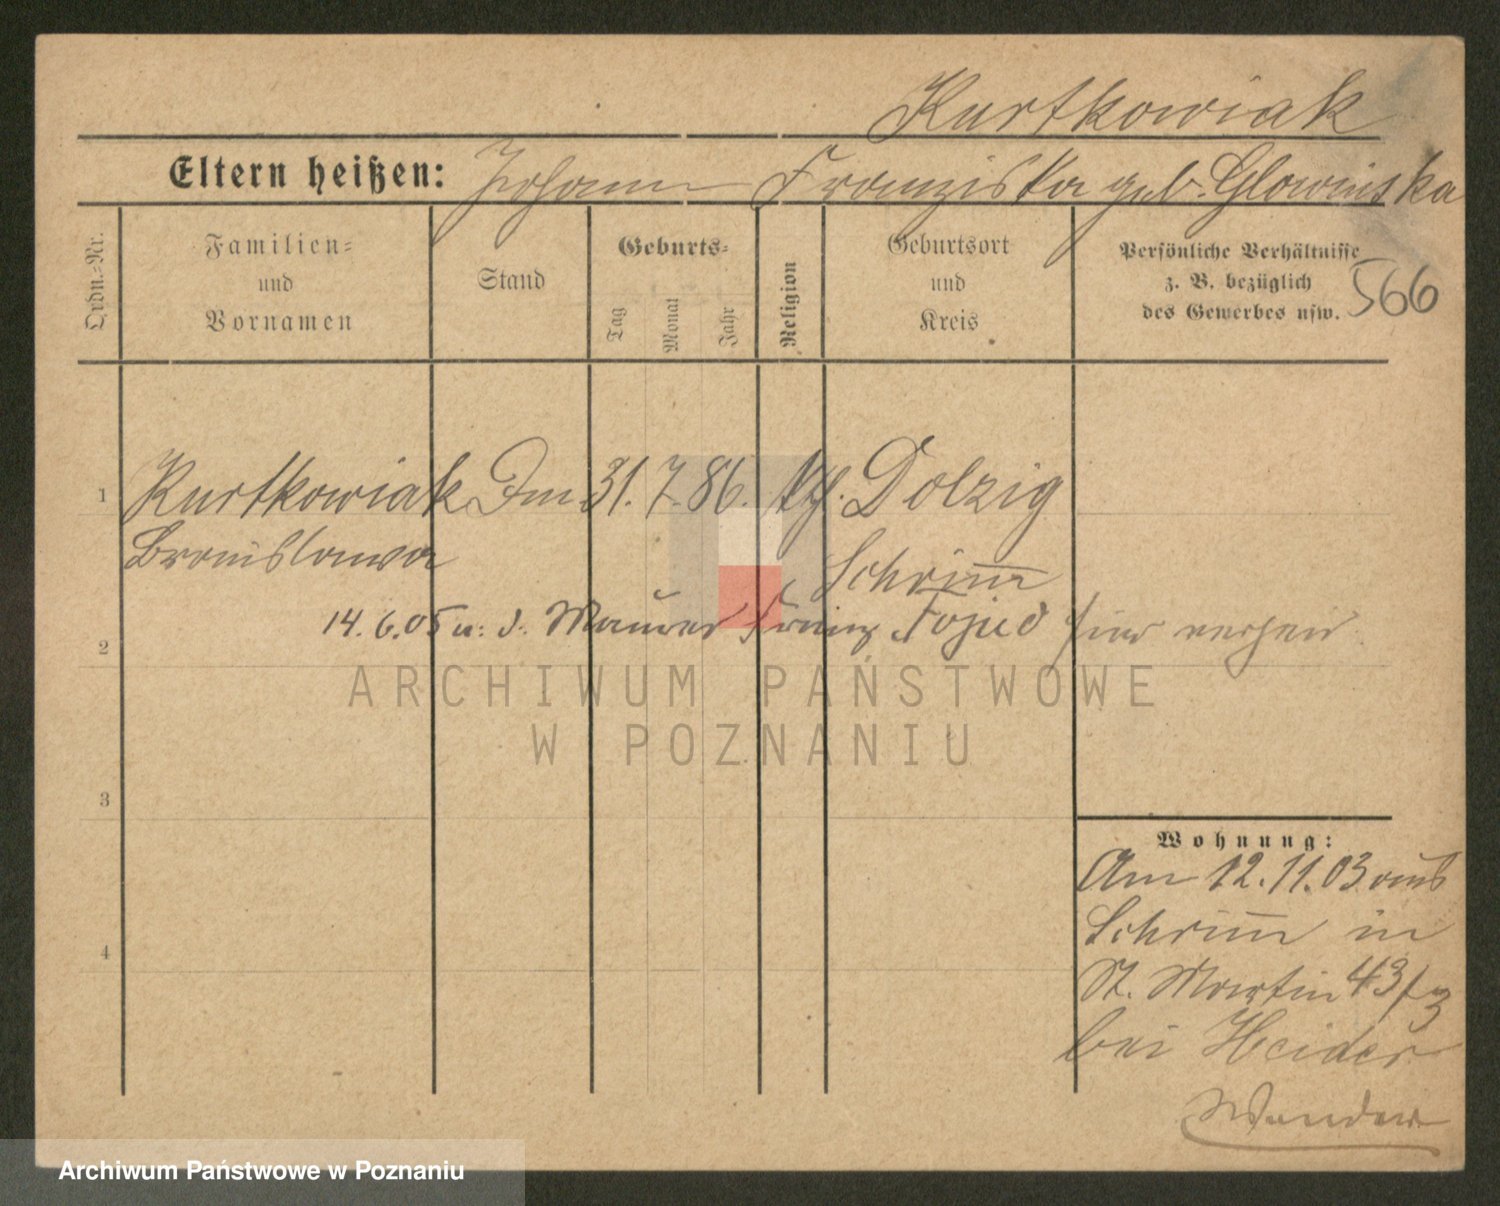 Kurtkowiak
Eltern heißen: Johann Franziska geb. Glowinska
Ordn.-Nr.
Familien-
und
Vornamen
Stand
Geburts-
Tag
Monat
Jahr
Religion
Geburtsort
und
Kreis
Persönliche Verhältnisse
z. B. bezüglich
des Gewerbes usw.
566
1 Kurtkowiak 31. 7. 86. Dolzig
Bronislawa Schrim̅
14. 6. 05 u. d. Maurer Franz hier verh.
2
3
4
ARCHIWUM PAŃSTWOWE
W POZNANIU
Wohnung:
Am 12. 11. 03 aus
Schrim̅ in
St. Martin 43/3
bei Heider
Archiwum Państwowe w Poznaniu